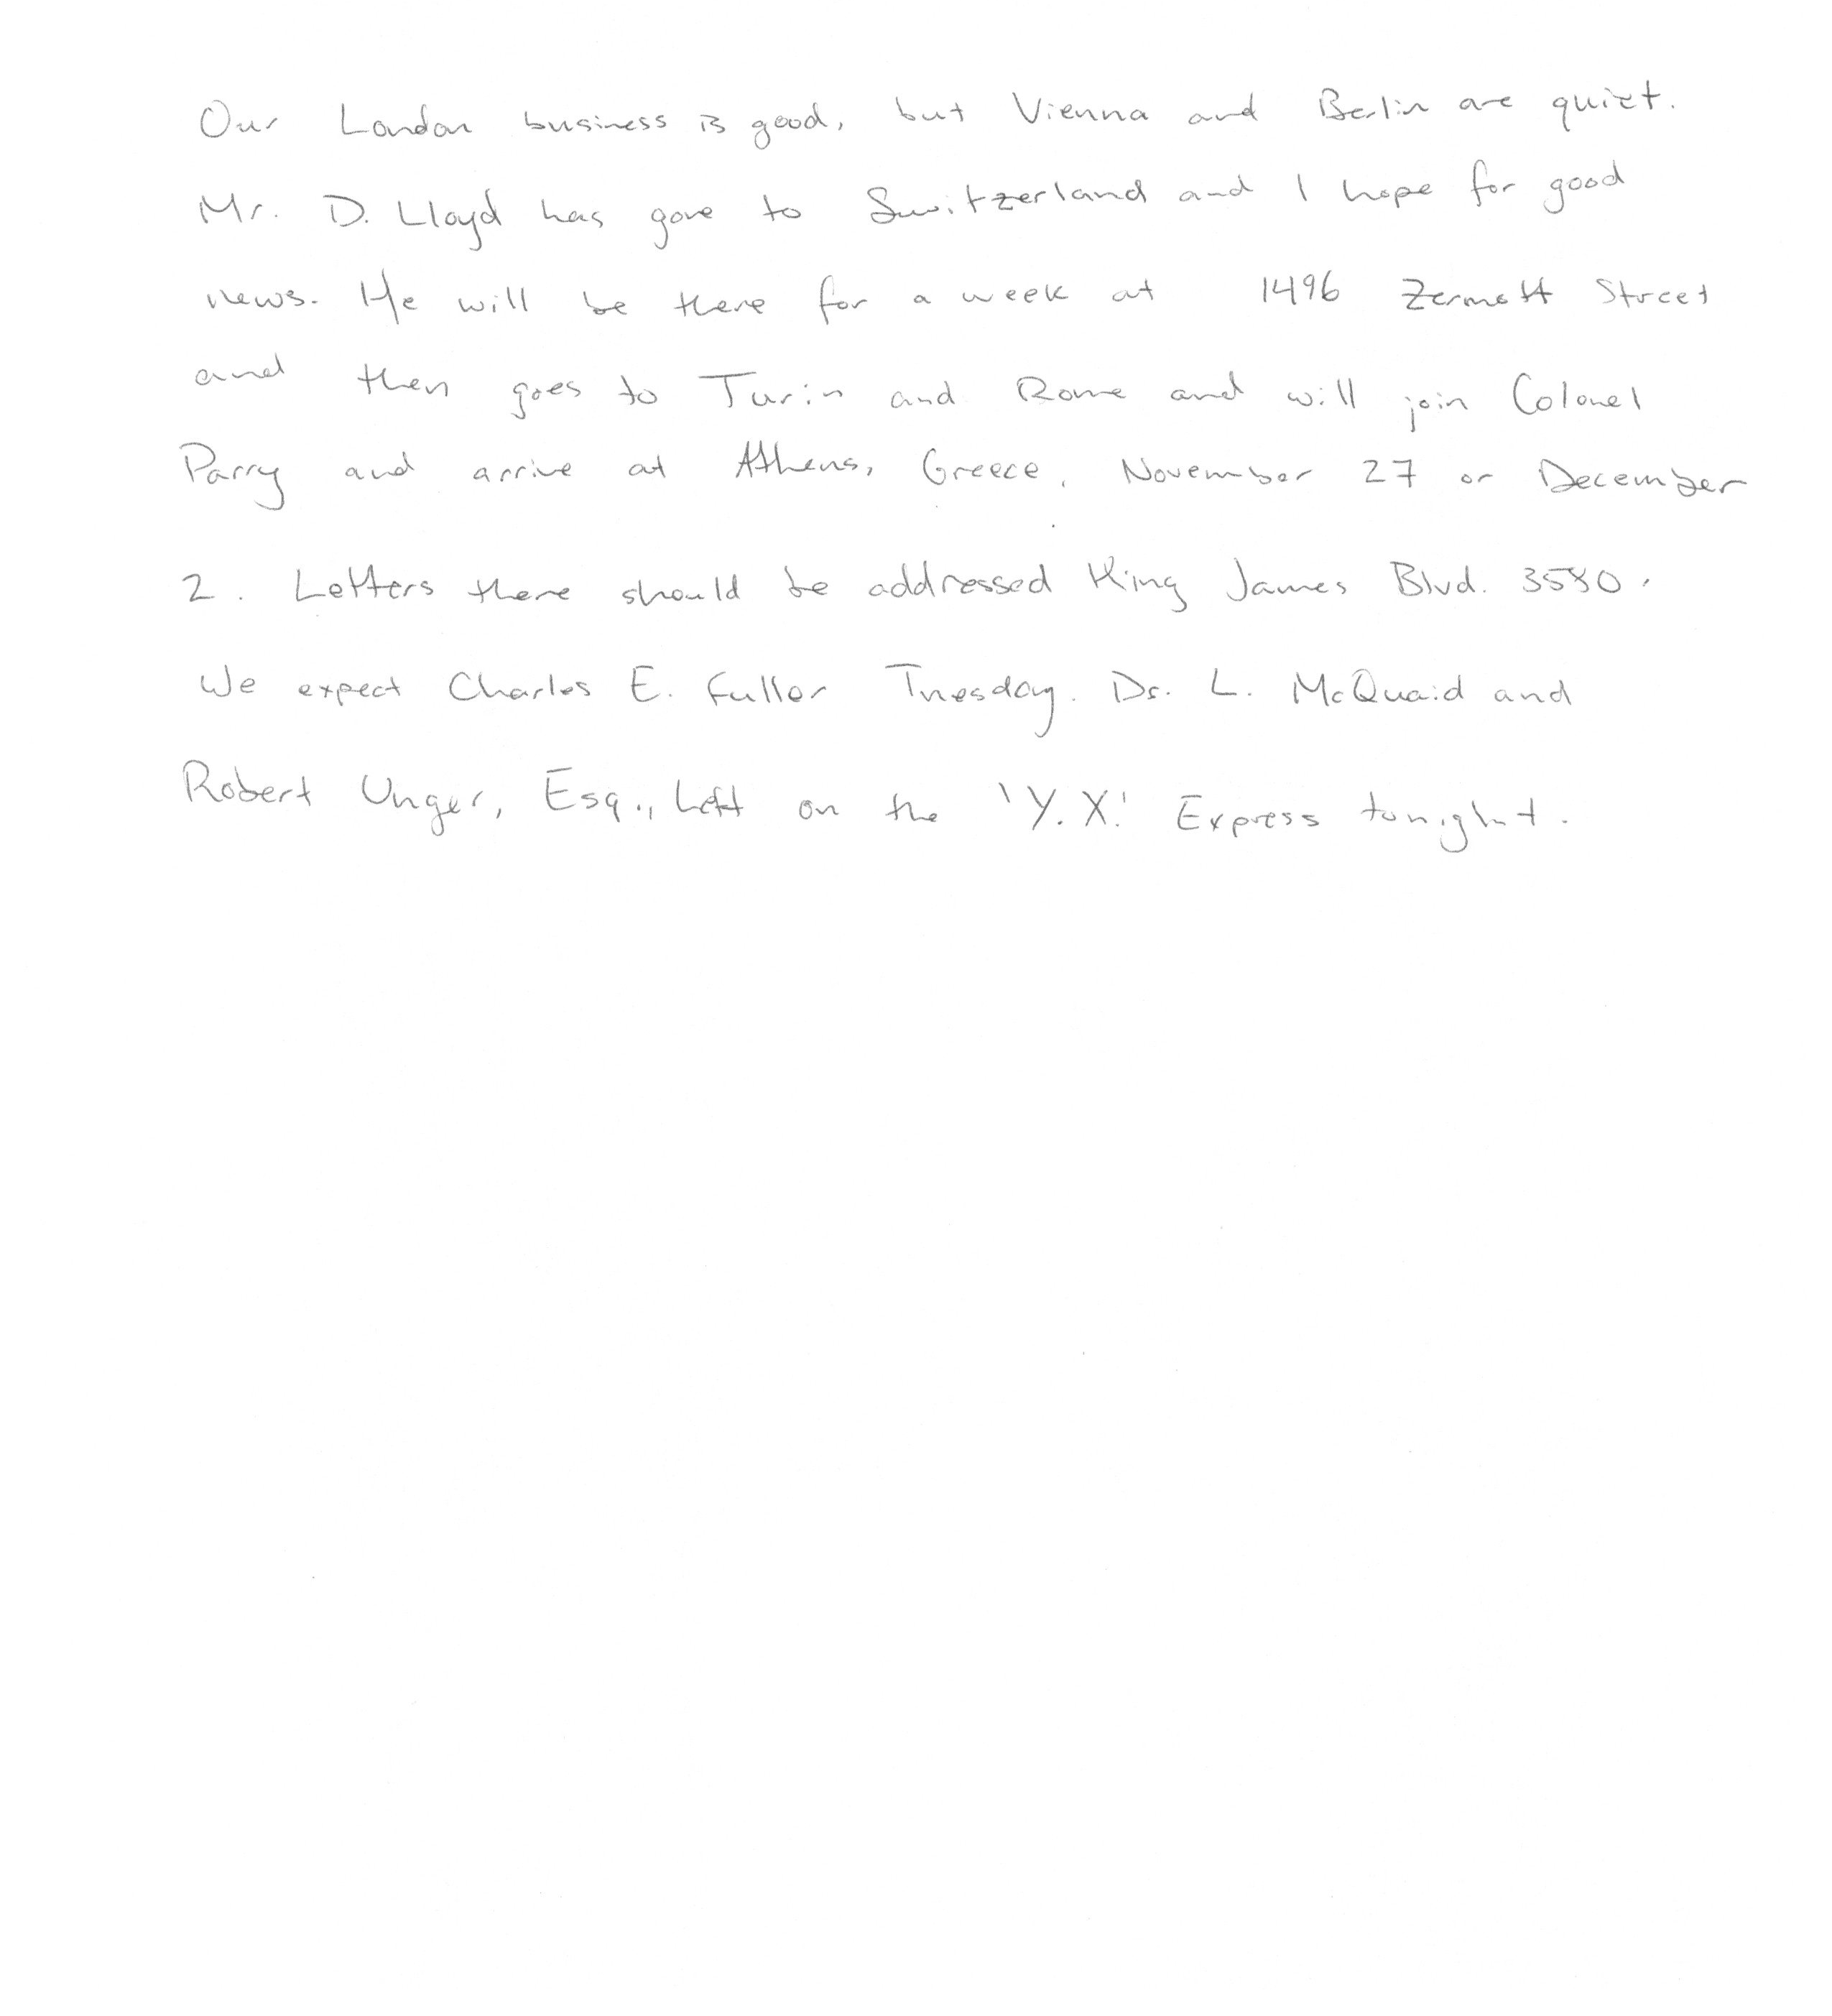 Our London business is good, but Vienna and Berlin are quiet.
Mr. D. Lloyd has gone to Switzerland and I hope for good
news. He will be there for a week at 1496 Zermott Street
and then goes to Turin and Rome and will join Colonel
Parry and arrive at Athens, Greece, November 27 or December
2. Letters there should be addressed King James Blvd. 3580.
We expect Charles E. Fuller Tuesday. Dr. L. McQuaid and
Robert Unger, Esq., left on the 'Y.X.' Express tonight.